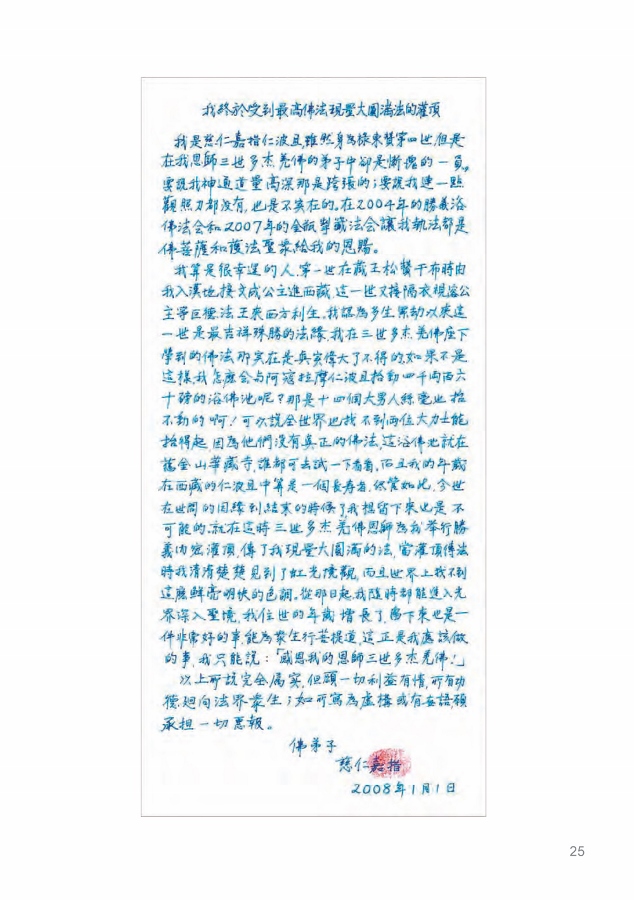 我終於受到最高佛法現量大圓滿法的灌頂
我是慈仁嘉措仁波且,雖然身為祿東贊第四世,但是
在我恩師三世多杰羌佛的弟子中卻是慚愧的一員。
要說我神通道量高深那是誇張的;要說我連一點
觀照力都沒有,也是不實在的。在2004年的勝義浴
佛法會和2007年的金瓶掣籤法會讓我執法都是
佛菩薩和護法聖眾給我的恩賜。
我算是很幸運的人,第一世在藏王松贊干布時由
我入漢地接文成公主進西藏,這一世又接隔衣視浴公
主等巨德法王來西方利生。我認為多生累劫以來這
一世是最吉祥殊勝的法緣,我在三世多杰羌佛座下
學到的佛法那實在是真實偉大了不得的,如果不是
這樣,我怎麼會与阿寇拉摩仁波且抬動四千兩百六
十磅的浴佛池呢?那是十四個大男人絲毫也抬
不動的啊!可以說全世界也找不到兩位大力士能
抬得起,因為他們沒有真正的佛法,這浴佛池就在
舊金山華藏寺,誰都可去試一下看看。而且我的年歲
在西藏的仁波且中算是一個長壽者,儘管如此,今世
在世間的因緣到結束的時候了,我想留下來也是不
可能的。就在這時三世多杰羌佛恩師為我舉行勝
義內密灌頂,傳了我現量大圓滿的法,當灌頂傳法
時我清清楚楚見到了虹光境觀,而且世界上找不到
這麼鮮亮明快的色調。從那日起,我隨時都能進入光
界深入聖境,我住世的年歲增長了,留下來也是一
件非常好的事,能為眾生行菩提道,這正是我應該做
的事,我只能說:「感恩我的恩師三世多杰羌佛!」
以上所說完全屬實,但願一切利益有情,所有功
德迴向法界眾生;如所寫為虛構或有妄語,願
承担一切惡報。
佛弟子
慈仁嘉措
2008年1月1日
25